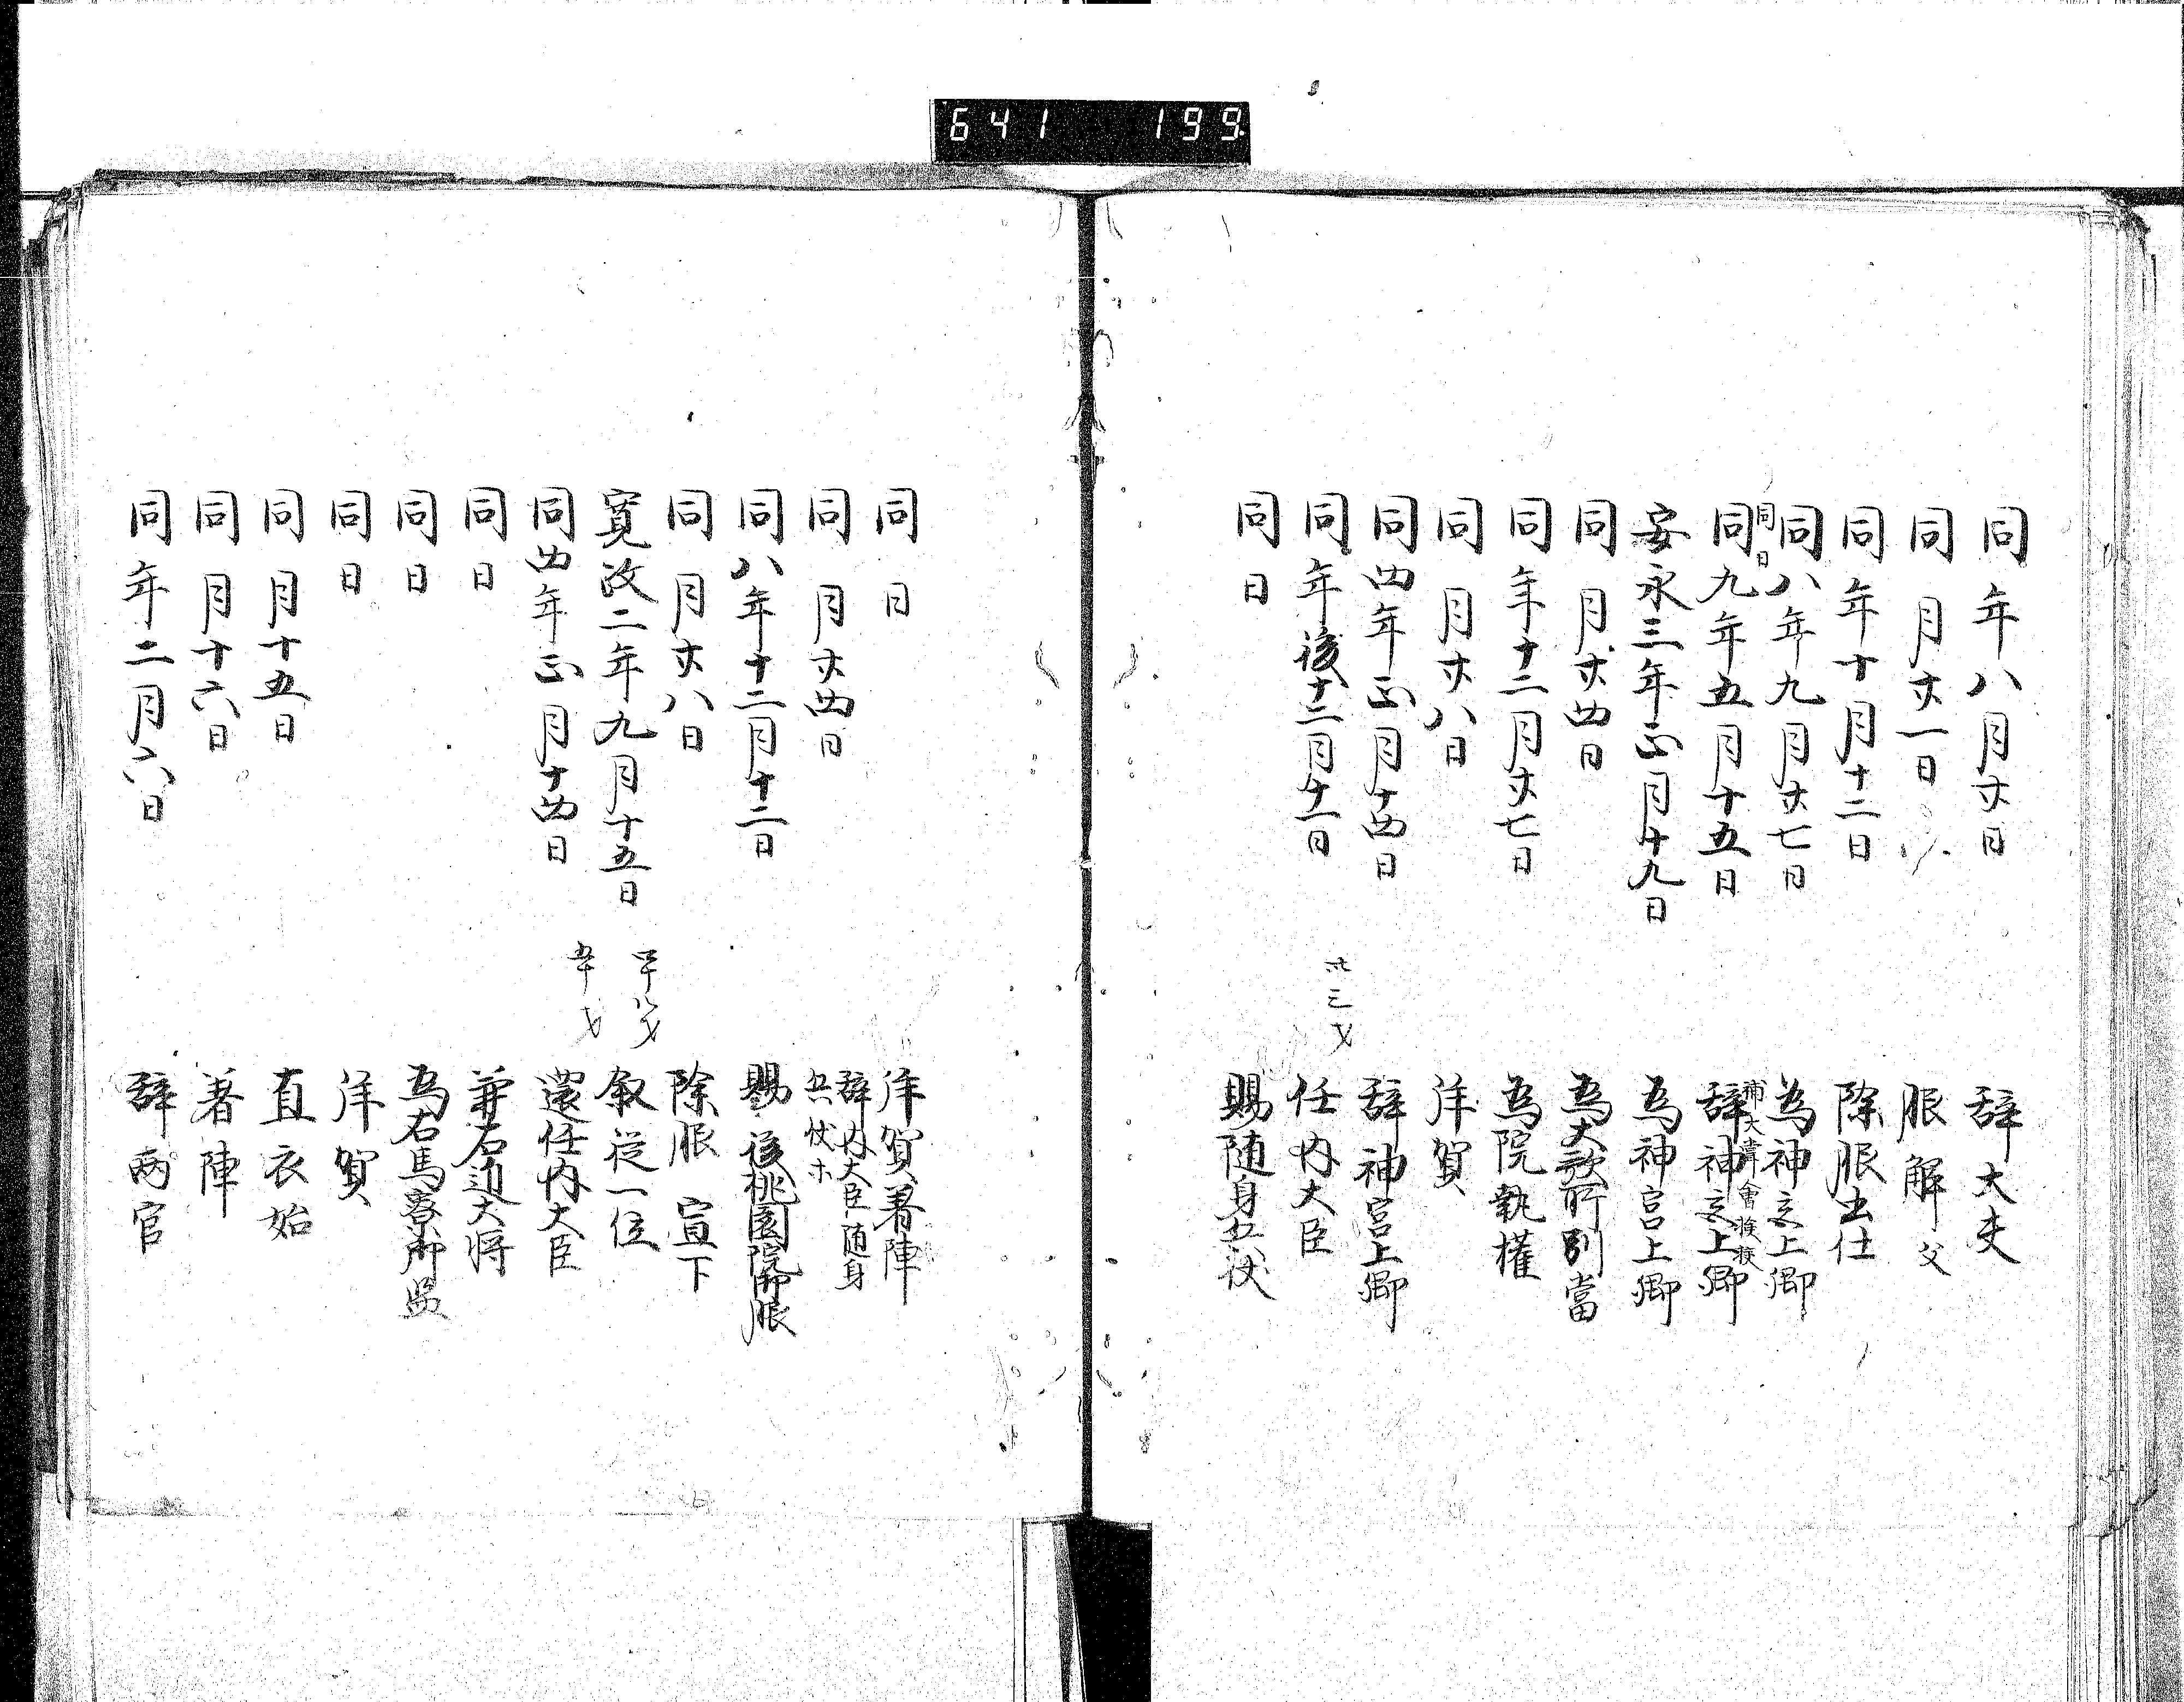 641 199
同年八月廿日 辞大夫
同月廿一日 服解父
同年十月十二日 除服出仕
同八年九月廿七日 為神宮上卿
同日 補大嘗會検校
同九年五月十五日 辞神宮上卿
安永三年正月十九日 為神宮上卿
同月廿四日 為大歌所別當
同年十二月廿七日 為院執權
同月廿八日 拝賀
同四年正月十四日 辞神宮上卿
同年後十二月十一日 卅三才 任内大臣
同日 賜随身兵仗
同日 拝賀着陣
同月廿四日 辞内大臣随身兵仗等
同八年十二月十二日 賜後桃園院御服
同月廿八日 除服宣下
寛政二年九月十五日 叙従一位
同四年正月十四日 五十才 還任内大臣
同日 兼右近大将
同日 為右馬寮御監
同日 拝賀
同月十五日 直衣始
同月十六日 着陣
同年二月六日 辞両官